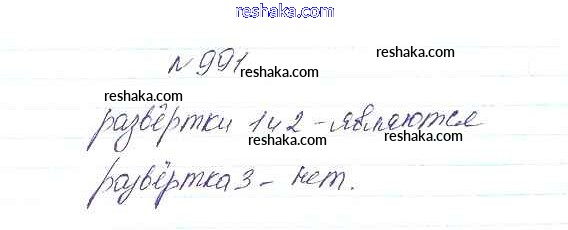 reshaka.com
№991
reshaka.com
reshaka.com
reshaka.com
развёртки 1 и 2 - являются
reshaka.com
reshaka.com
развёртка 3 - нет.